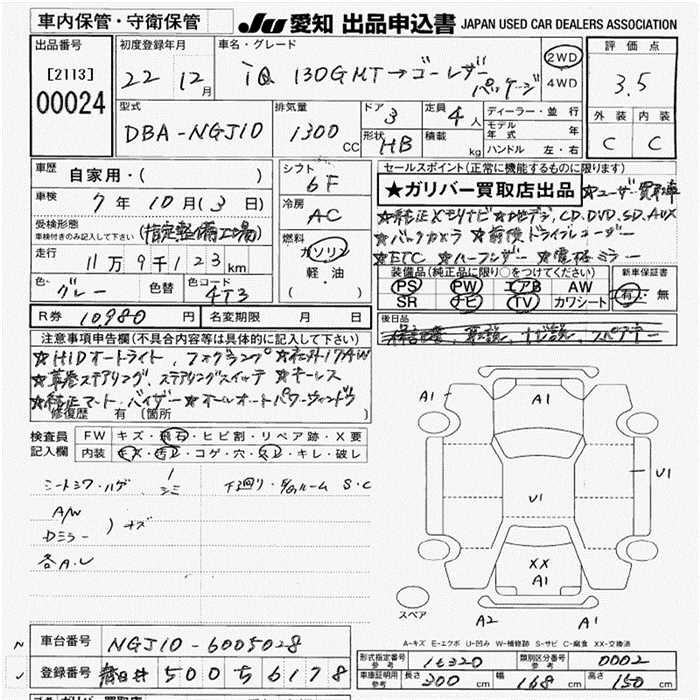 車内保管・守衛保管
JU 愛知 出品申込書 JAPAN USED CAR DEALERS ASSOCIATION
出品番号
[2113]
00024
初度登録年月
22 12月
車名・グレード
iQ 130GMT→ゴーレザーパッケージ
2WD
4WD
評価点
3.5
外装 内装
C C
型式
DBA-NGJ10
排気量
1300cc
ドア
3
形状
HB
定員
4人
積載
kg
ディーラー・並行
モデル年式 年
ハンドル 左・右
車歴
自家用・( )
車検
7年10月(3日)
受検形態
車検付きのみ記入して下さい
(指定整備工場)
走行
11万9千123km
色
グレー
色替
色コード
4T3
シフト
6F
冷房
AC
燃料
ガソリン
軽・油
( )
セールスポイント(正常に機能するものに限ります)
★ガリバー買取店出品 ★ユーザー買取車
★純正メモリナビ ★地デジ,CD,DVD,SD,AUX
★バックカメラ ★前後ドライブレコーダー
★ETC ★ハーフレザー ★電格ミラー
装備品(純正品に限り○をつけてください)
PS PW エアB AW
SR ナビ TV カワシート
新車保証書
有・無
R券 10980円
名変期限 月 日
後日品
注意事項申告欄(不具合内容等は具体的に記入して下さい)
★HIDオートライト、フォグランプ ★社外17AW
★革巻ステアリング、ステアリングスイッチ ★キーレス
★純正マート・バイザー ★オールオートパワーウィンドウ
修復歴 有 〔箇所
検査員記入欄
FW キズ・飛石・ヒビ割・リペア跡・X要
内装 キズ・汚レ・コゲ・穴・スレ・キレ・破レ
シートシワ・ハゲ シミ 下廻り・E/Gルーム S・C
A/W
Dミラー )キズ
各A.U
A1
A1
U1
U1
XX
A1
A2
A1
スペア
A-キズ E-エクボ U-凹み W-補修跡 S-サビ C-腐食 XX-交換済
車台番号 NGJ10-6005028
登録番号 春日井 500 ち 6178
形式指定番号 参考 16320
類別区分番号 参考 0002
車庫証明用 参考 長さ 300cm 幅 168cm 高さ 150cm